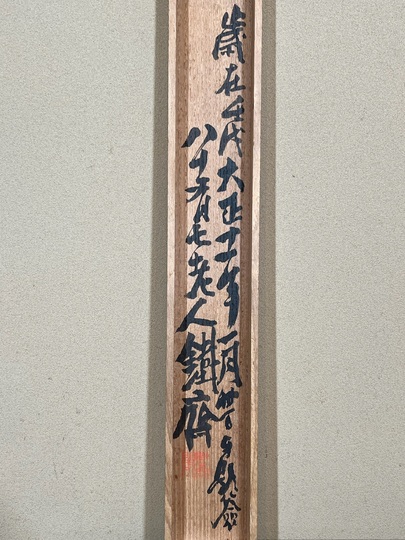 歳在壬戌大正十一年一月廿日自題簽
八十有七老人鐵齋